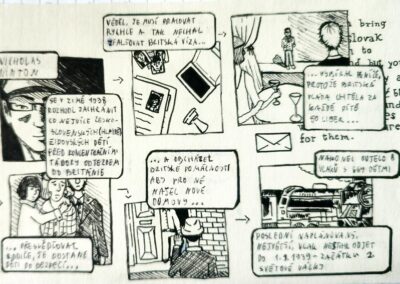 NICHOLAS
WINTON
SE V ZIMĚ 1938
ROZHODL ZACHRÁNIT
CO NEJVÍCE ČESKO-
SLOVENSKÝCH (HLAVNĚ
ŽIDOVSKÝCH) DĚTÍ
PŘED KONCENTRAČNÍMI
TÁBORY ODJEZDEM
DO BRITÁNIE
VĚDĚL, ŽE MUSÍ PRACOVAT
RYCHLE A TAK NECHAL
ZFALŠOVAT BRITSKÁ VÍZA...
... VYBÍRAL PENÍZE,
PROTOŽE BRITSKÁ
VLÁDA CHTĚLA ZA
KAŽDÉ DÍTĚ
50 LIBER...
bring
slovak
to
and
but you
for them.
... PŘESVĚDČOVAL
RODIČE, ŽE DOSTANE
DĚTI DO BEZPEČÍ...
... A OBCHÁZEL
BRITSKÉ DOMÁCNOSTI
ABY PRO NĚ
NAŠEL NOVÉ
DOMOVY...
NAKONEC ODJELO 8
VLAKŮ S 669 DĚTMI
POSLEDNÍ NAPLÁNOVANÝ,
NEJVĚTŠÍ, VLAK NESTIHL ODJET
DO 1.9.1939 - ZAČÁTKU 2.
SVĚTOVÉ VÁLKY